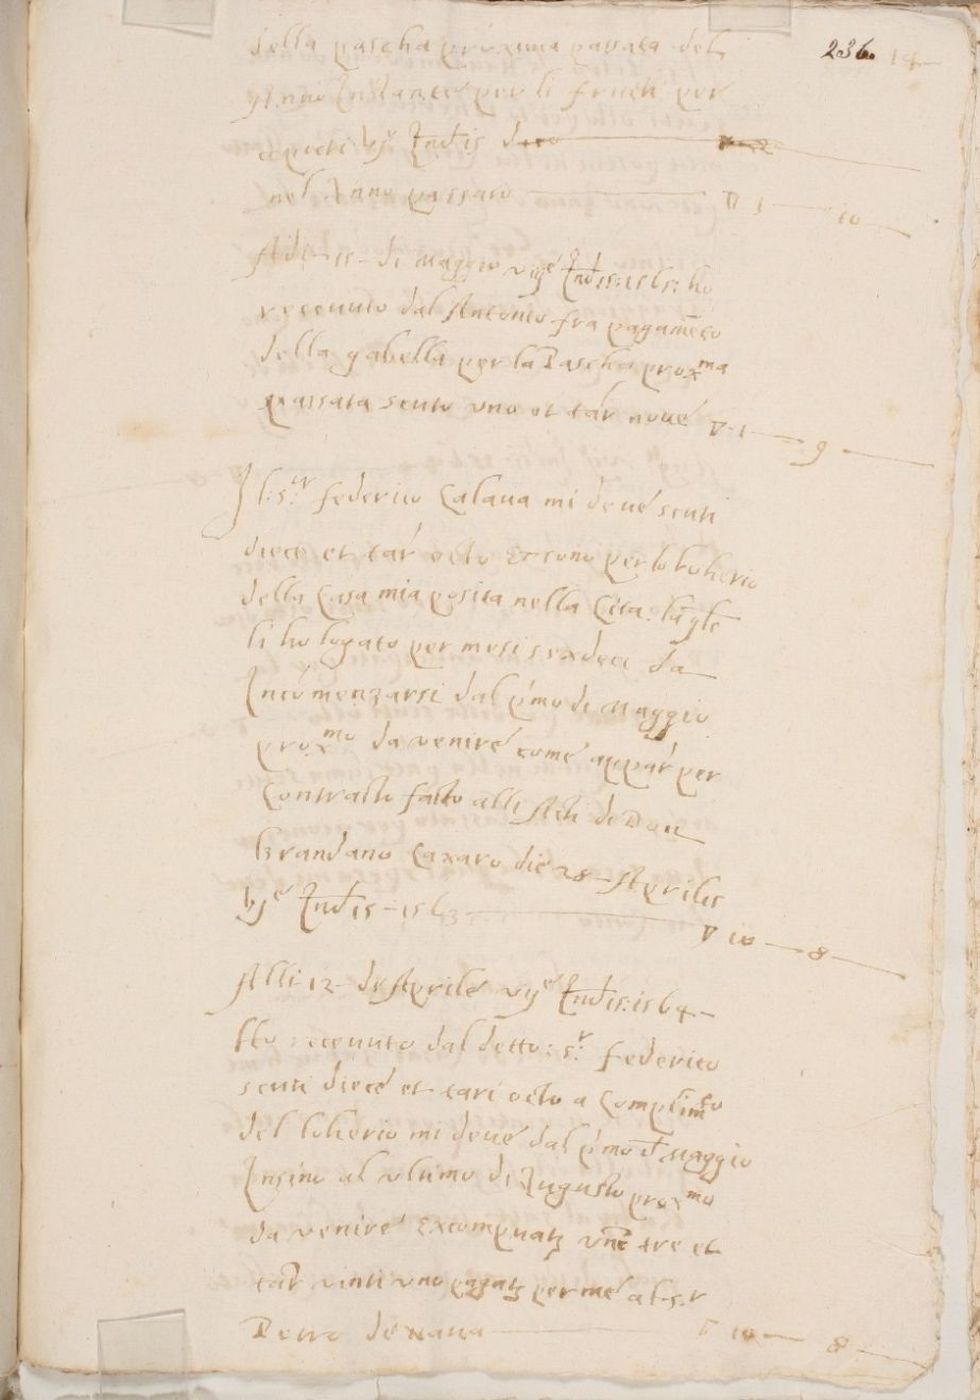 236
della pascha proxima passata del
Anno Instante per li frutti per
cepieti vj Indis
nel Anno passato ∇ 1 — 10
Adi - 15 - di Maggio vije Indis: 1565: ho
receuuto dal Antonio fra pagamēto
della gabella per la Pascha proxma
passata scuto uno et tar noue ∇ 1 — 9
Il: s.ur federico Calaua mi deue scuti
diece et tar octo et sono per lo loherio
della Casa mia posita nella Cita: la qle
li ho logato per mesi sexdeci da
Incōmenzarsi dal p'mo di Maggio
proxmo da venire come appar per
Contracto facto alli Acti de Don
Brandano Caxaro die 28 - Aprilis
vje Indis - 1563 ∇ 10 — 8
Alli - 12 - de Aprile vije Indis: 1564 -
Ho receuuto dal detto: s.r federico
scuti diece et tari octo a Complimto
del loherio mi deue dal p'mo d Maggio
Insino al ultimo di Augusto proxmo
da venire excomputatj unc tre et
tar vinti uno pagatj per me al s.r
Petro de naua ∇ 10 — 8